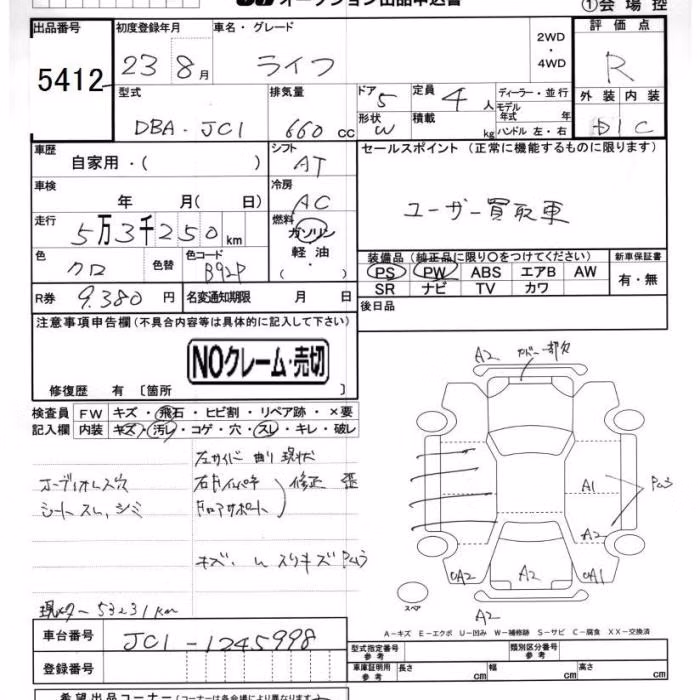 オークション出品申込書
①会場控
出品番号 5412
初度登録年月 23 8月
車名・グレード ライフ
2WD・4WD
評価点 R
外装 内装 D C
型式 DBA・JC1
排気量 660 cc
ドア 5 形状 W
定員 4人 積載 kg
ディーラー・並行
モデル年式 年
ハンドル 左・右
車歴 自家用・( )
シフト AT
セールスポイント (正常に機能するものに限ります)
ユーザー買取車
車検 年 月( 日)
冷房 AC
走行 5万3千250km
燃料 ガソリン 軽油・( )
色 クロ 色替
色コード B92P
装備品 (純正品に限り○をつけてください)
PS PW ABS エアB AW
SR ナビ TV カワ
新車保証書 有・無
R券 9.380円
名変通知期限 月 日
後日品
注意事項申告欄 (不具合内容等は具体的に記入して下さい)
NOクレーム・売切
修復歴 有 〔箇所 〕
検査員記入欄
FW キズ・飛石・ヒビ割・リペア跡・×要
内装 キズ・汚レ・コゲ・穴・スレ・キレ・破レ
オーディオレス穴
シートスレ、シミ
左サイド曲り現状
修正 歪
現メーター 53231km
A2 カバー一部欠
A1
A2
A2
A2
A1
A2
スペア
A-キズ E-エクボ U-凹み W-補修跡 S-サビ C-腐食 XX-交換済
車台番号 JC1-1245998
登録番号
型式指定番号 参考
類別区分番号 参考
車庫証明用 参考 長さ cm 幅 cm 高さ cm
希望出品コーナー